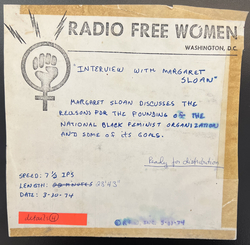 RADIO FREE WOMEN
WASHINGTON, D.C.
"INTERVIEW WITH MARGARET
SLOAN"
MARGARET SLOAN DISCUSSES THE
REASONS FOR THE FOUNDING OF THE
NATIONAL BLACK FEMINIST ORGANIZATION
AND SOME OF ITS GOALS.
Ready for distribution
SPEED: 7½ IPS
LENGTH: 25'45"
DATE: 3-20-74